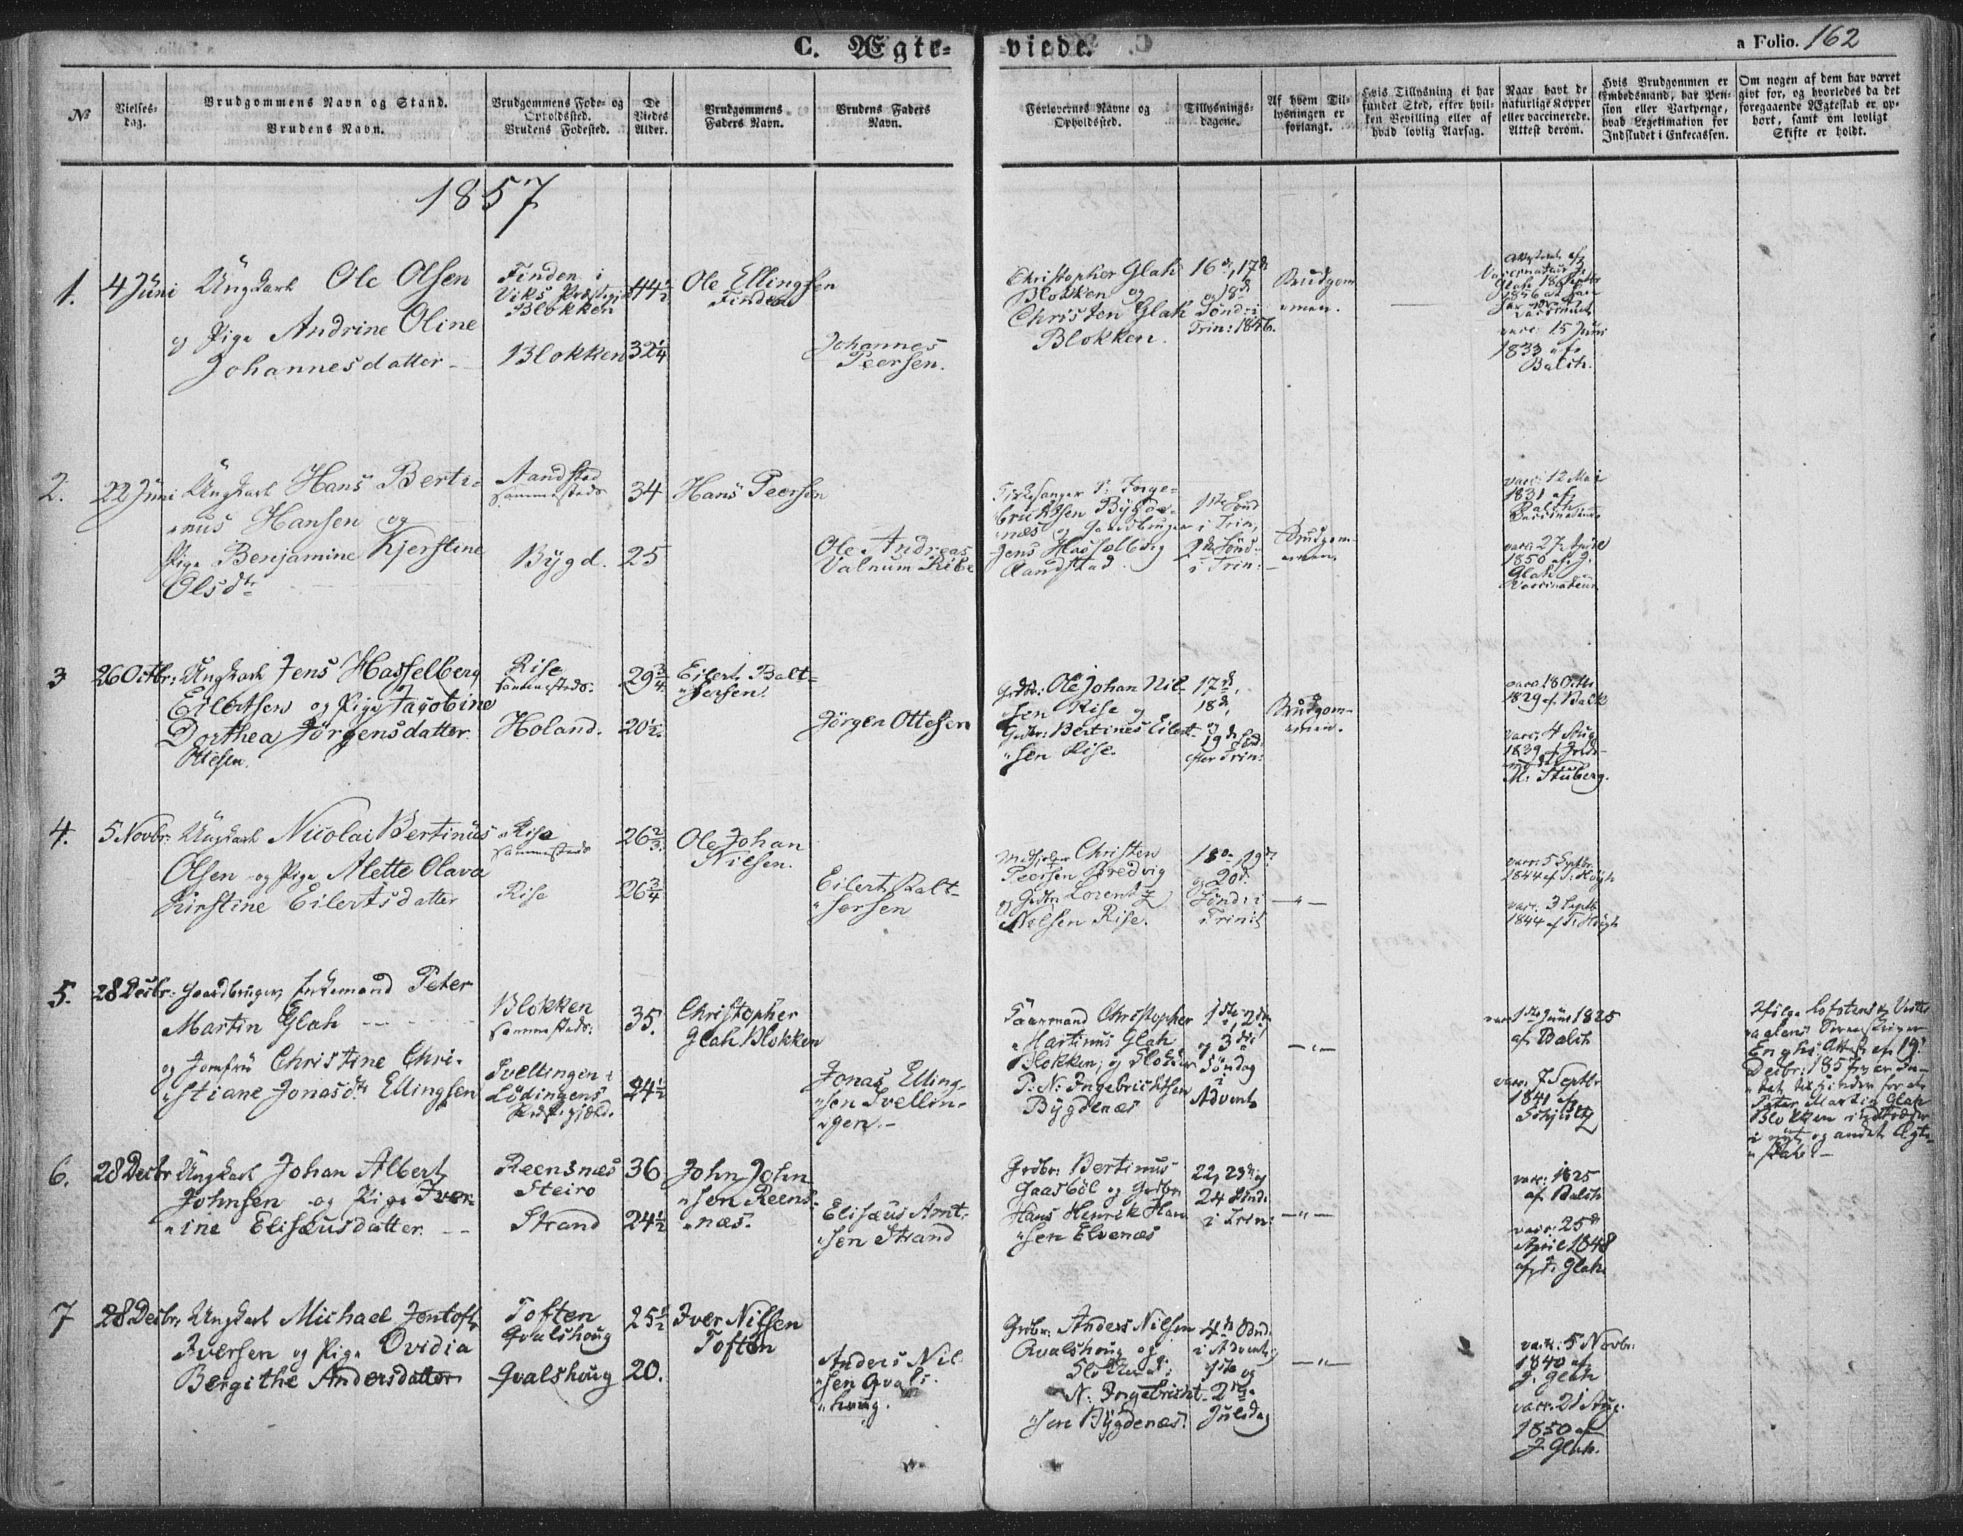 C. Ægte-
viede.
a Folio. 162
№
Vielses-
dag.
Brudgommens Navn og Stand.
Brudens Navn.
Brudgommens Føde- og
Opholdssted.
Brudens Fødested.
De
Viedes
Alder.
Brudgommens
Faders Navn.
Brudens Faders
Navn.
Forlovernes Navne og
Opholdssted.
Tillysnings-
dagene.
Af hvem Til-
lysningen er
forlangt.
Hvis Tillysning ei har
fundet Sted, efter hvil-
ken Bevilling eller af
hvad lovlig Aarsag.
Naar havt de
naturlige Kopper
eller vaccinerede.
Attest derom.
Hvis Brudgommen er
Embedsmand, har Pen-
sion eller Vartpenge,
hvad Legitimation for
Indskudet i Enkecassen.
Om nogen af dem har været
givt før, og hvorledes da det
foregaaende Ægteskab er op-
hørt, samt om lovligt
Skifte er holdt.
1857
1.
4 Juni
Ungkarl Ole Olsen
og Pige Andrine Oline
Johannesdatter
Finden i
Viks Præstegj
Blokken
Blokken
44½
32¼
Ole Ellingsen
Finden
Johannes
Peersen.
Christopher Glah
Blokken og
Christen Glah
Blokken.
16de, 17de
og 18de
Sønd: i
Trin: 1856.
Brudgom-
men.
vacc: 15 Juni
1833 af
Balch.
2.
22 Juni
Ungkarl Hans Berti-
nus Hansen og
Pige Benjamine Kjerstine
Olsdtr
Aandstad
sammesteds
Bygd.
34
25
Hans Peersen
Ole Andreas
Valnum Ribe
Kirkesanger P: Inge-
brichtsen Bygde-
næs og Gaardbruger
Jens Hasselberg
Aandstad
1ste Sønd
i Trin,
2den Sønd-
i Trin:
Brudgom-
men.
vacc: 12 Mai
1831 af
Balch
vacc: 27 April
1850 af J.
Glah
Vaccinateur
3
26 Octbr:
Ungkarl Jens Hasselberg
Eilertsen og Pige Jacobine
Dorthea Jörgensdatter
Ottesen.
Rise
sammesteds.
Holand.
29¾
20½
Eilert Balt-
sersen.
Jörgen Ottesen
Grdbr: Ole Johan Nil-
sen Rise og
Grdbr: Bertines Eilert-
sen Rise.
17de,
18de,
19de Sønd:
efter Trin:
Brudgom-
men.
vacc: 18 Octbr
1829 af Balch
vacc: 4 Aug
1839 af Jorde-
moder
M: Stüberg.
4.
5 Novbr:
Ungkarl Nicolai Bertinus
Olsen og Pige Alette Olava
Kirstine Eilertsdatter
Rise
sammesteds
Rise
26⅔
26¾
Ole Johan
Nilsen.
Eilert Balt-
sersen
Christen
Peersen Fredvig
og Grdbr: Lorentz
Nilsen Rise.
18de, 19de
og 20de
Sønd: i
Trinit
— „ —
vacc: 5 Septbr
1844 af
vacc: 3 Septb
1844 af
5.
28 Decbr:
Gaardbruger, Enkemand Peter
Martin Glah
og Jomfru Christine Chri-
stiane Jonasdtr Ellingsen
Blokken
sammesteds.
Tvellingen i
Lödingens
Præstegjæld.
35.
24½
Christopher
Glah Blokken
Jonas Elling-
sen Tvellin-
gen.
Faarmand Christopher
Martinus Glah
Blokken, og Klokker
P: N: Ingebrichtsen
Bygdenæs
1ste, 2den
og 3die
Søndag
i
Advent
— „ —
vacc: 1ste Juni 1825
af Balch
vacc: 7 Septbr
1841 af
Schjultz
Ifölge Lofotens & Vester-
aalens Sorenskriver
Enghs Attest af 19
Decbr: 1857, er In-
tet til Hinder for at
Peter Martin Glah
Blokken indtræder
i nyt og andet Ægte-
skab.
6.
28 Decbr
Ungkarl Johan Albert
Johnsen og Pige Iver-
ine Elisæusdatter.
Reensnæs
Steiro
Strand
36
24½
John John-
sen Reens-
næs.
Elisæus Arnt-
sen Strand
Grdbr: Bertinus
Gaasböl og Grdbr
Hans Henrik Han-
sen Elvenæs
22, 23de og
24 Sønd:
i Trin:
— „ —
vacc: 1825
af Balch
vacc: 25de
April 1848
af J. Glah
7
28 Decbr,
Ungkarl Michael Jentoft
Iversen og Pige Ovidia
Bergithe Andersdatter
Toften
Qvalshoug
Qvalshoug
25½
20.
Iver Nilsen
Toften
Anders Nil-
sen Qvals-
houg.
Grdbr: Anders Nilsen
Qvalshoug og
Klokker P:
N: Ingebricht-
sen Bygdenæs.
4de Sønd:
i Advent,
1ste og
2den
Juledag
— „ —
vacc: 5 Novbr:
1840 af
J. Glah
vacc: 21 Aug.
1850 af
J. Glah.